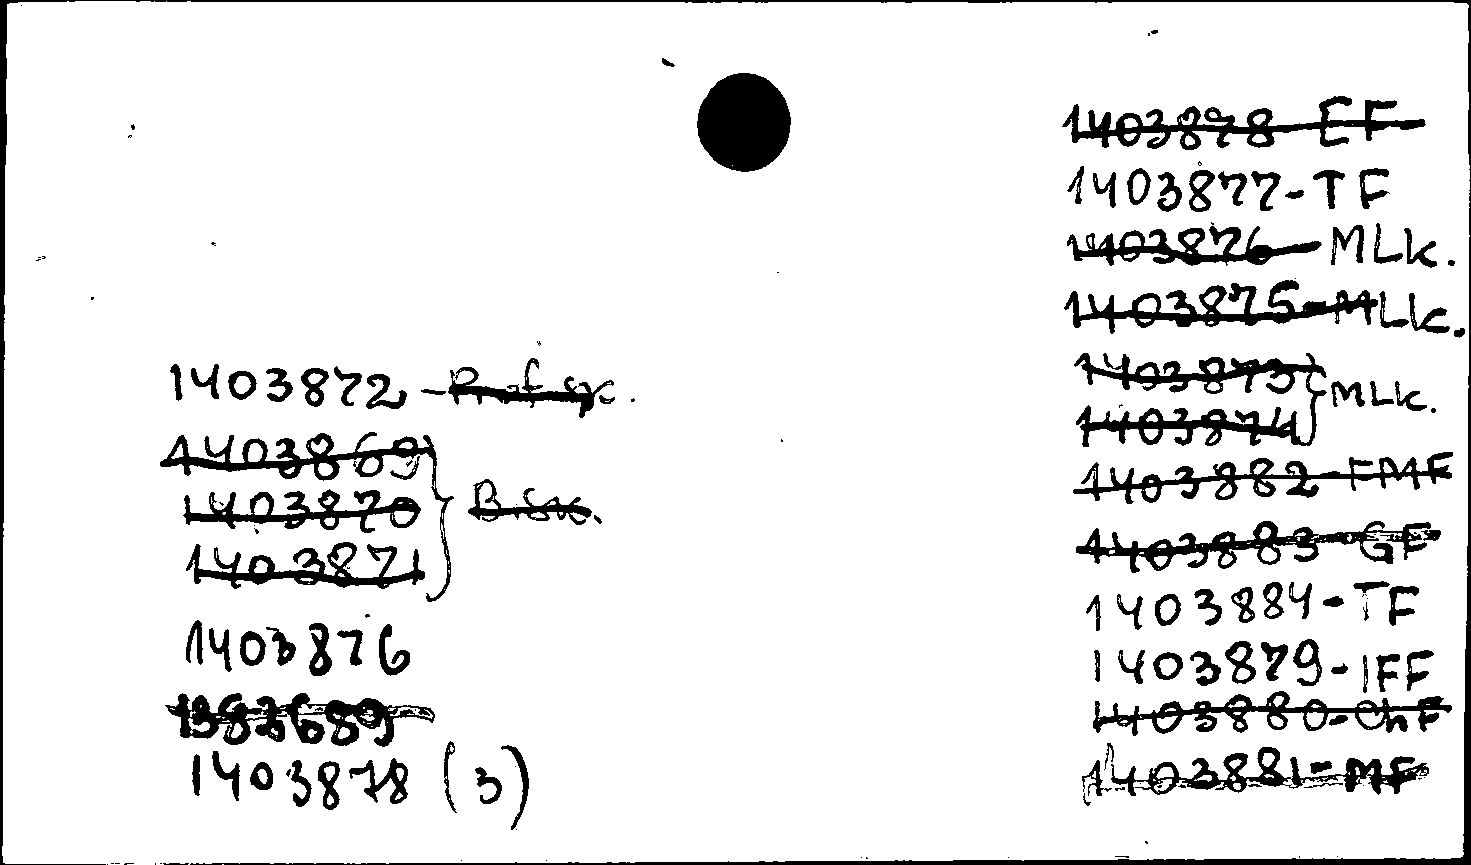 1403872 - Prof. syc.
1403869
1403870 } B.Sw.
1403871
1403876
1383689
1403878 (3)
1403878 - EF
1403877 - TF
1403876 - MLk.
1403875 - MLk.
1403873 } MLk.
1403874
1403882 - FMF
1403883 - GF
1403884 - TF
1403879 - IFF
1403880 - ChF
1403881 - MF